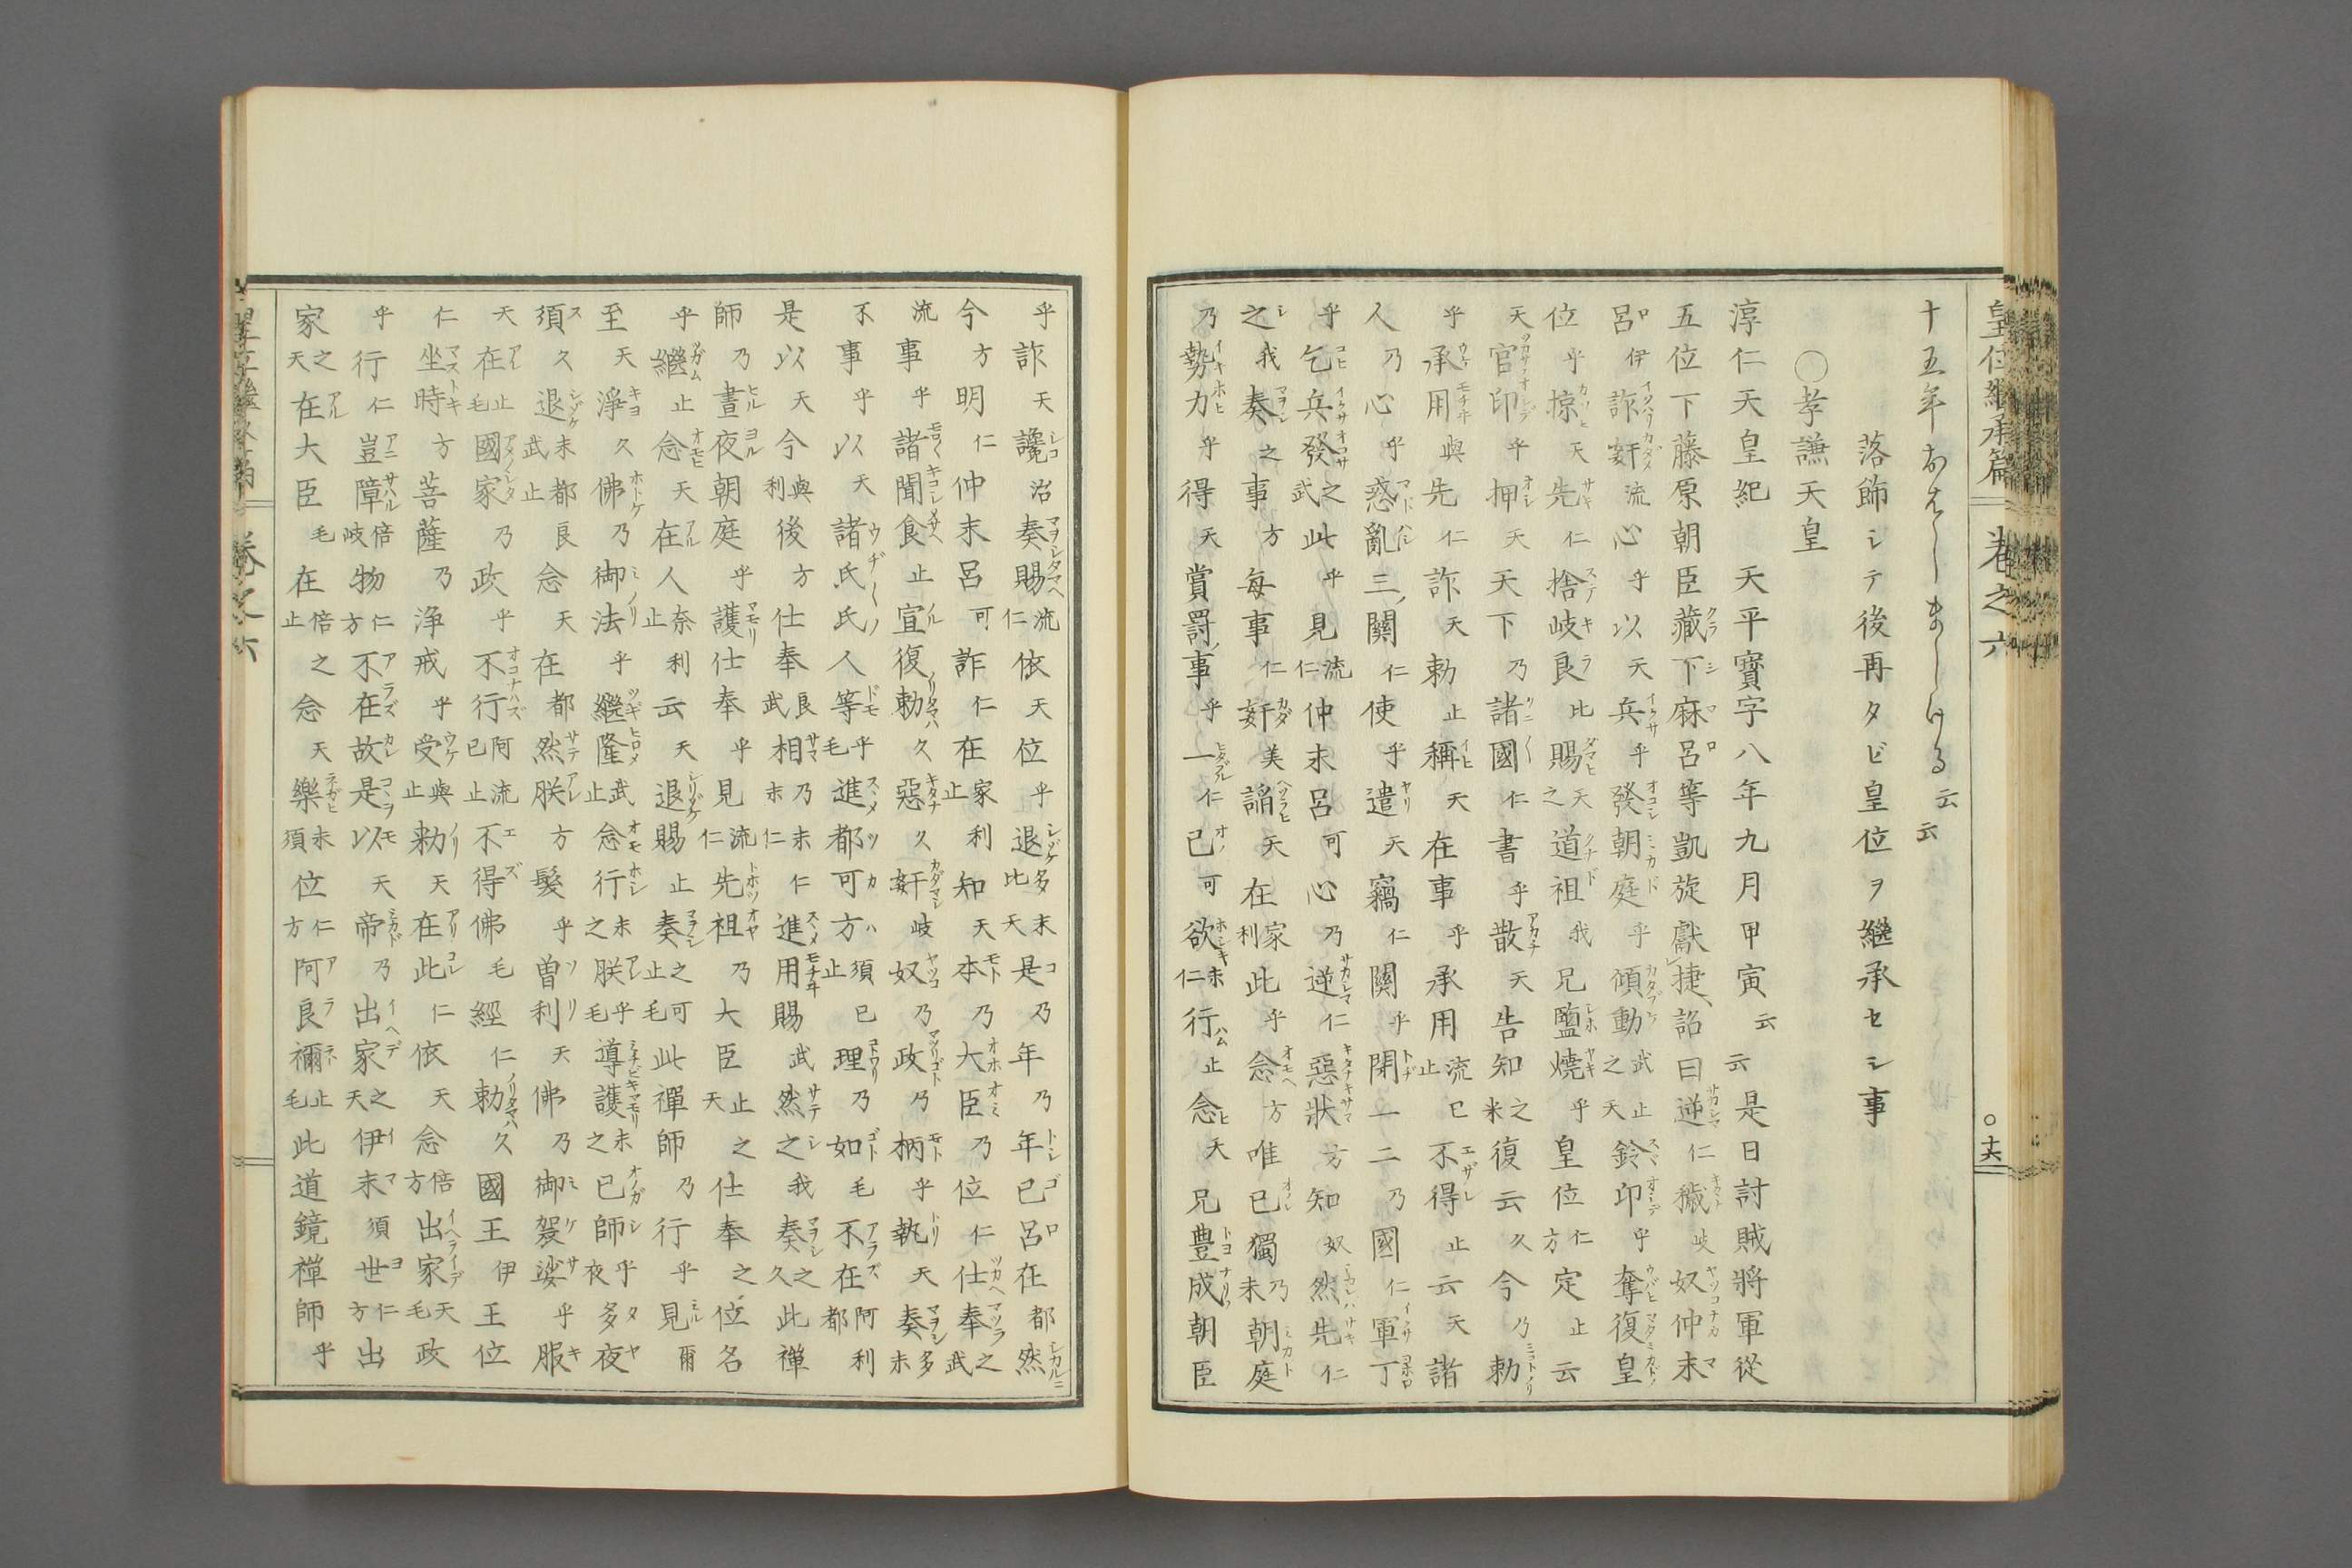 皇位繼承篇 卷之六 ○十六
十五年おはしましける云云
落飾シテ後再タビ皇位ヲ繼承セシ事
○孝謙天皇
淳仁天皇紀 天平寶字八年九月甲寅云云是日討賊將軍從
五位下藤原朝臣藏下麻呂等凱旋獻捷詔曰逆仁穢岐奴仲末
呂伊詐姧流心乎以天兵乎發朝庭乎傾動武止之天鈴印乎奪復皇
位乎掠天先仁捨岐良比賜天之道祖我兄鹽燒乎皇位仁方定止云
天官印乎押天天下乃諸國仁書乎散天告知之米復云久今乃勅
乎承用與先仁詐天勅止稱天在事乎承用流已止不得止云天諸
人乃心乎惑亂三關仁使乎遣天竊仁關乎閇一二乃國仁軍丁
乎乞兵發之武此乎見流仁仲末呂可心乃逆仁惡狀方知奴然先仁
之我奏之事方每事仁姧美謟天在家利此乎念方唯己獨乃未朝庭
乃勢力乎得天賞罰事乎一仁己可欲末仁行止念天兄豊成朝臣
乎詐天讒治奏賜流仁依天位乎退多比末天是乃年乃年己呂在都然
今方明仁仲末呂可詐仁在家止利知天本乃大臣乃位仁仕奉之武
流事乎諸聞食止宣復勅久惡久姧岐奴乃政乃柄乎執天奏多末
不事乎以天諸氏氏人等乎毛進都可方須止已理乃如毛不在阿都利
是以天今與利後方仕奉良武相乃末末仁仁進用賜武然之我奏之久此禪
師乃晝夜朝庭乎護仕奉乎見流仁先祖乃大臣止天之仕奉之位名
乎繼止念天在人奈止利云天退賜止奏之止可毛此禪師乃行乎見爾
至天淨久佛乃御法乎繼隆武止念行末之朕乎毛導護末之己師乎夜多夜
須久退末武都止良念天在都然朕方髮乎曽利天佛乃御袈裟乎服
天在止毛國家乃政乎不行阿已流止不得佛毛經仁勅久國王伊王位
仁坐時方菩薩乃浄戒乎受與止勅天在此仁依天念倍方出家天毛政
乎行仁豈障倍岐物仁方不在故是以天帝乃出家之天伊末須世仁方出
家之天在大臣毛在倍止之念天樂末須位仁方阿良禰止毛此道鏡禪師乎
皇位繼承篇 卷之六